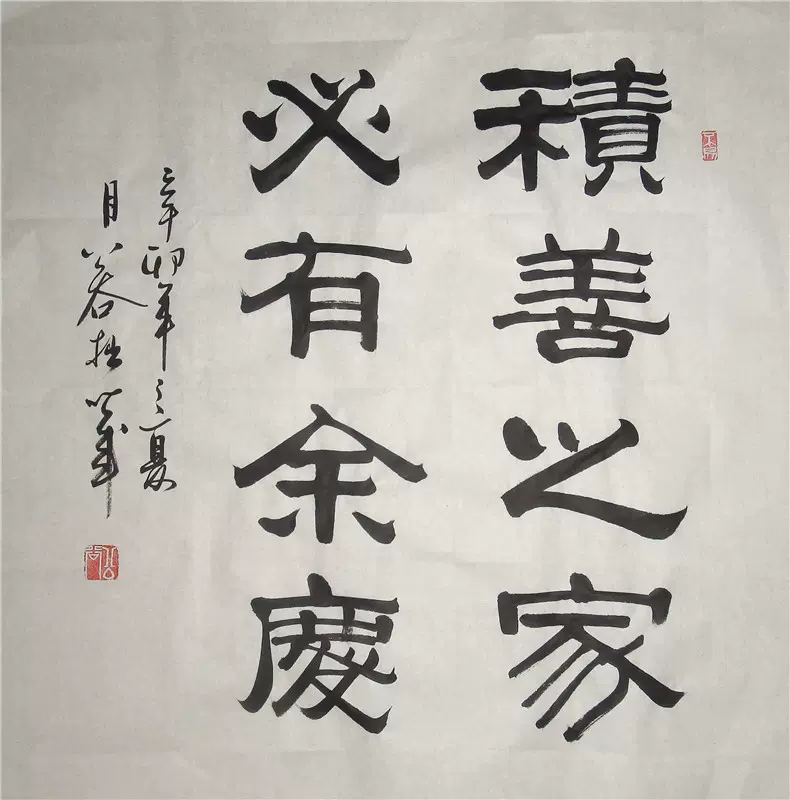 積善之家
必有余慶
辛卯年之夏
月谷拙筆